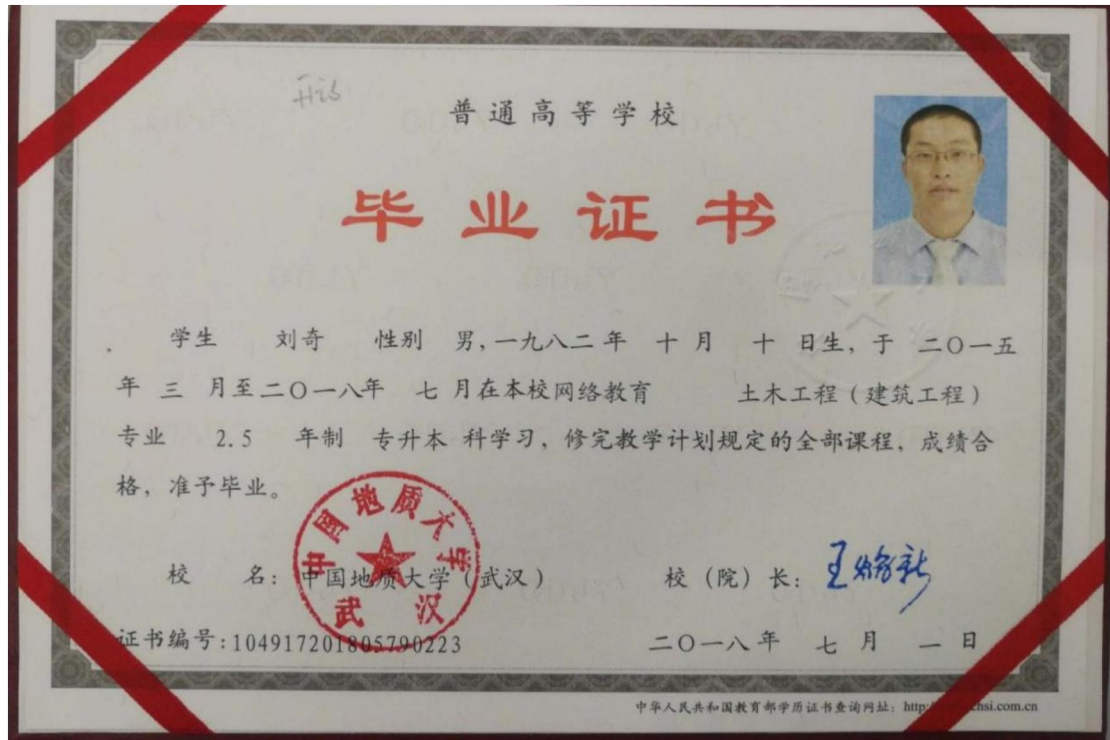 普通高等学校
毕业证书
学生 刘奇 性别 男,一九八二年 十月 十 日生,于 二〇一五
年 三 月至二〇一八年 七 月在本校网络教育 土木工程（建筑工程）
专业 2.5 年制 专升本 科学习，修完教学计划规定的全部课程，成绩合
格，准予毕业。
中国地质大学
武汉
校 名：中国地质大学（武汉） 校（院）长：王焰新
证书编号:104917201805790223 二〇一八年 七月 一日
中华人民共和国教育部学历证书查询网址：http: chsi.com.cn